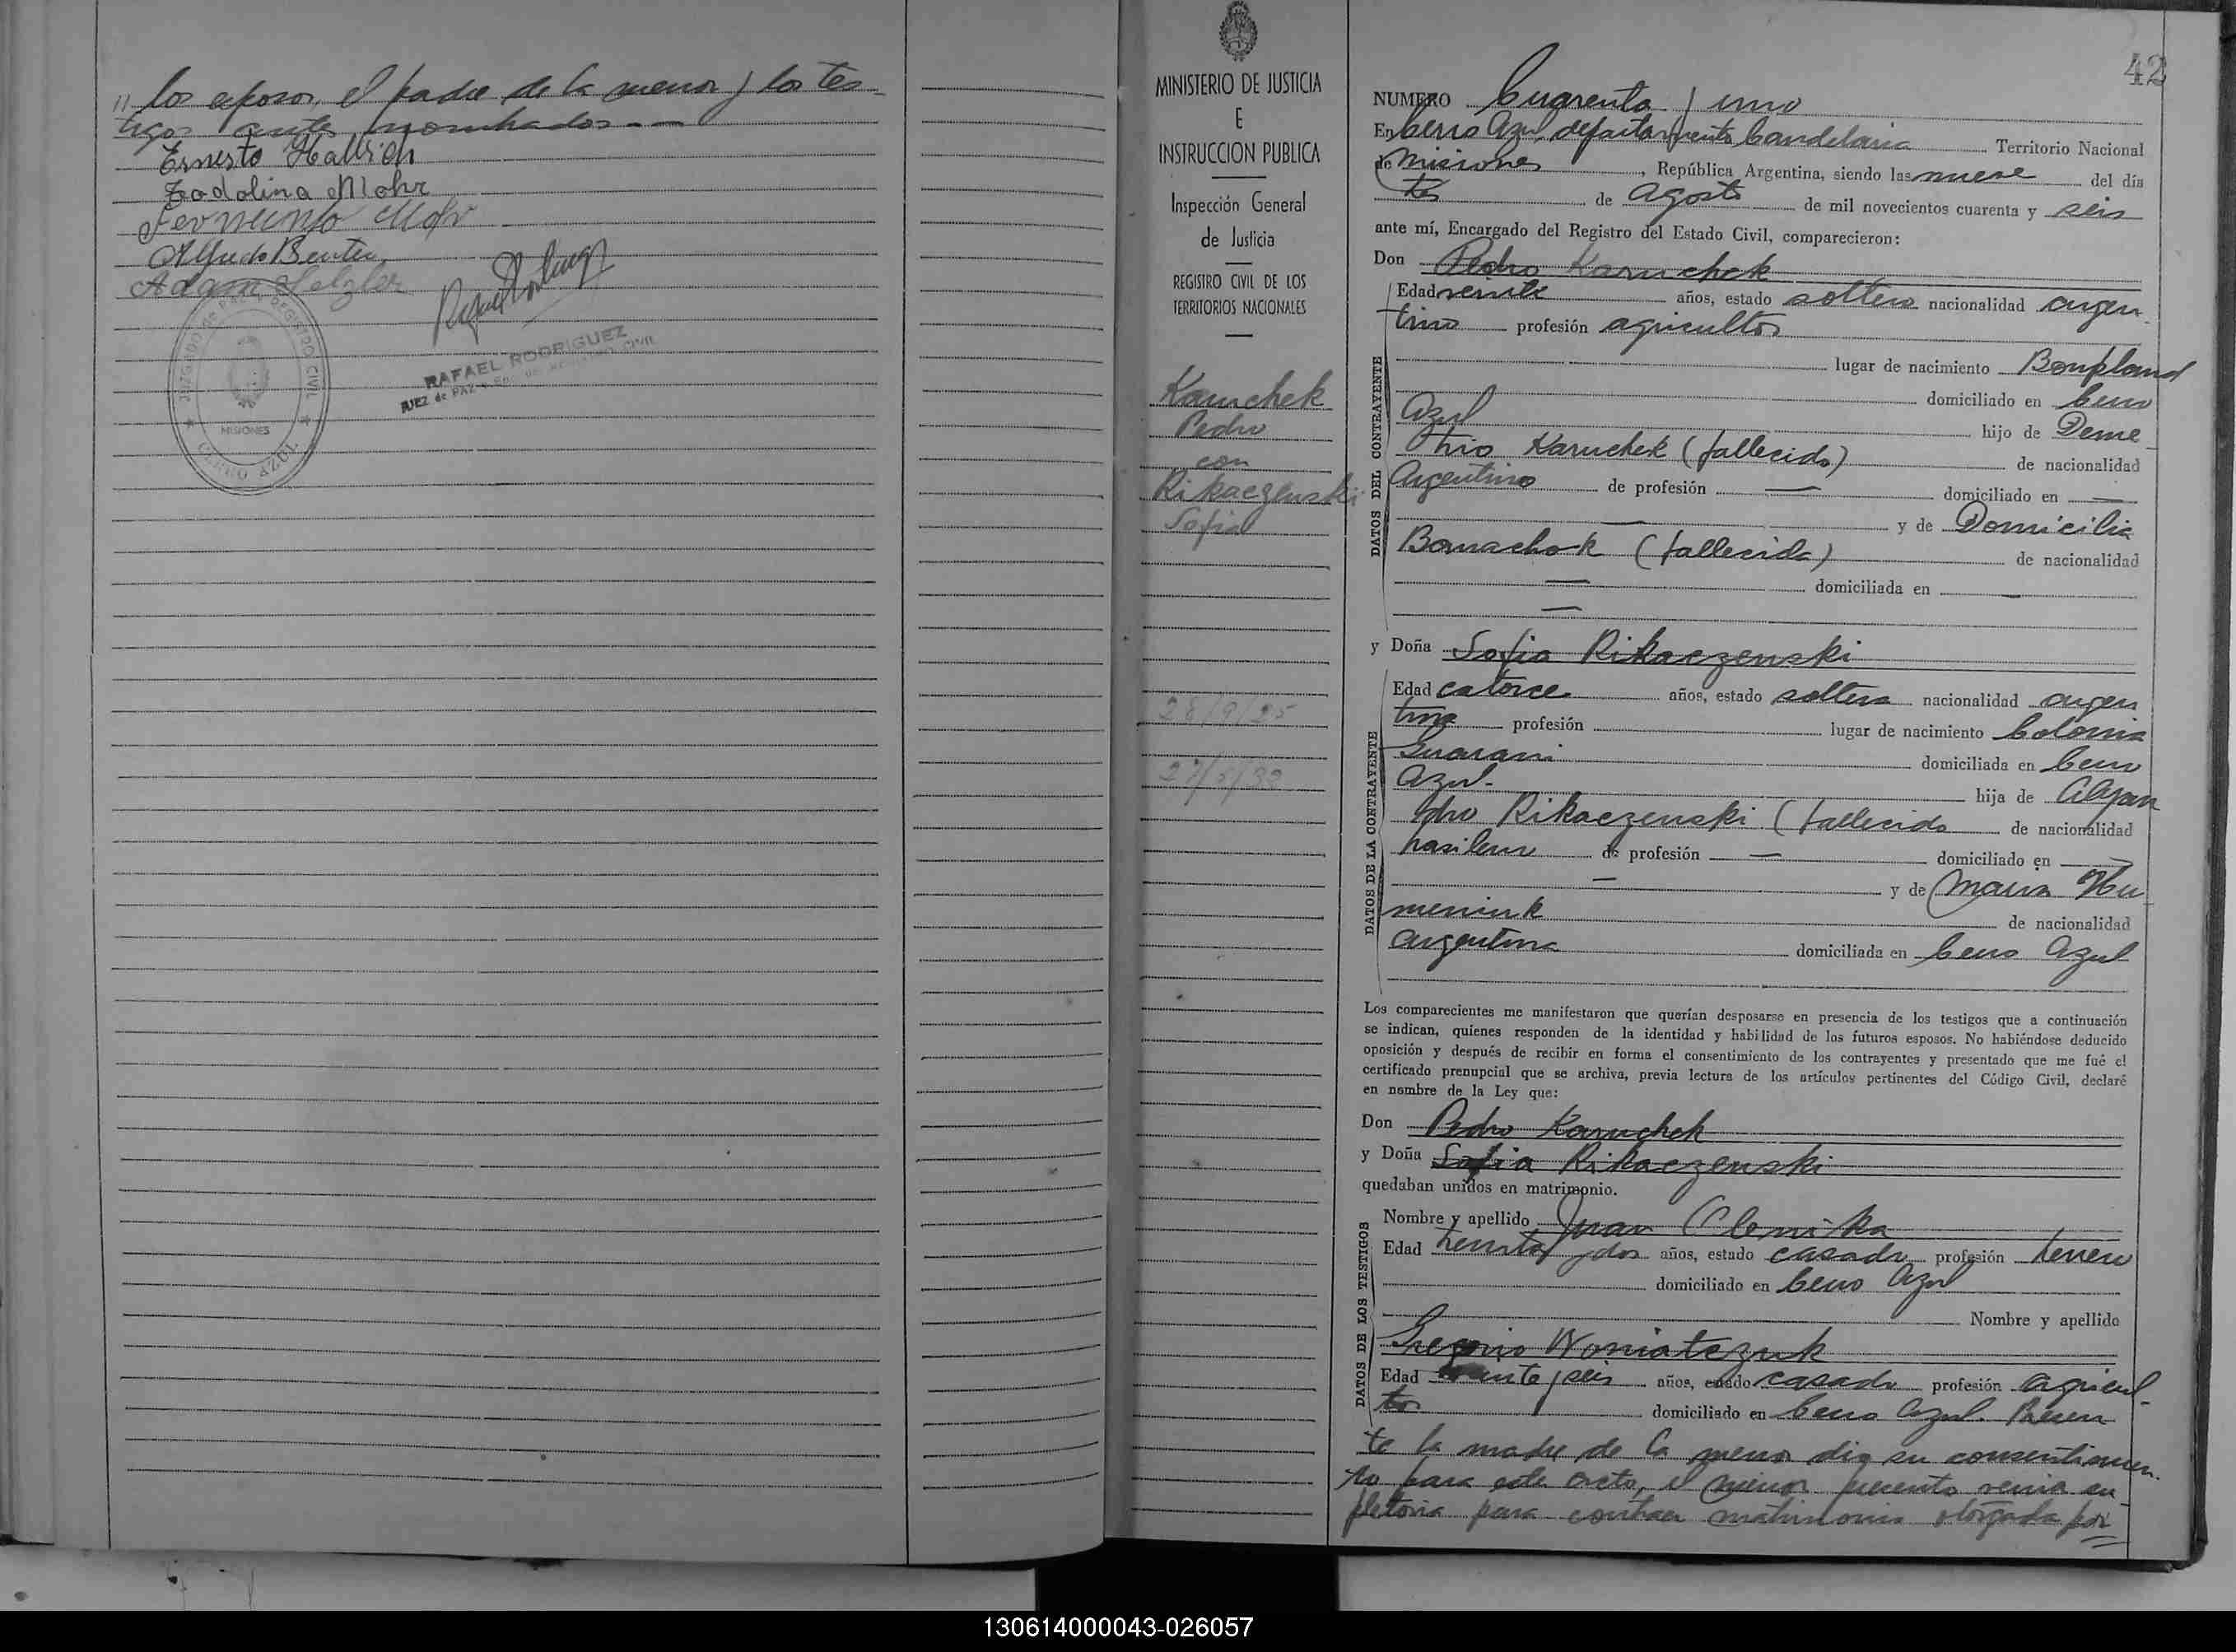 11 los esposos, el padre de la menor y los tes-
tigos antes nombrados - —
Ernesto Hattrich
Lodolina Mohr
Fernando Mohr
Alfredo Benten
Adam Selzler
RAFAEL RODRIGUEZ
JUEZ de PAZ y Enc. del REGISTRO CIVIL
JUZGADO de PAZ y REGISTRO CIVIL
MISIONES
CERRO AZUL
MINISTERIO DE JUSTICIA
E
INSTRUCCION PUBLICA
Inspección General
de Justicia
REGISTRO CIVIL DE LOS
TERRITORIOS NACIONALES
Karuchek
Pedro
con
Rikaczenski
Sofia
28/9/25
27/5/32
42
NUMERO Cuarenta y uno
En Cerro Azul, departamento Candelaria Territorio Nacional
de Misiones, República Argentina, siendo las nueve del día
tres de Agosto de mil novecientos cuarenta y seis
ante mí, Encargado del Registro del Estado Civil, comparecieron:
Don Pedro Karuchek
DATOS DEL CONTRAYENTE
Edad veinte años, estado soltero nacionalidad argen
tino profesión agricultor
lugar de nacimiento Bonpland
domiciliado en Cerro
Azul hijo de Deme
trio Karuchek (fallecido) de nacionalidad
Argentino de profesión — domiciliado en —
— y de Domicilia
Bomachok (fallecida) de nacionalidad
— domiciliada en —
—
y Doña Sofia Rikaczenski
DATOS DE LA CONTRAYENTE
Edad catorce años, estado soltera nacionalidad argen
tina profesión lugar de nacimiento Colonia
Guarani domiciliada en Cerro
Azul. hija de Alejan
dro Rikaczenski (fallecido de nacionalidad
brasilero de profesión — domiciliado en —
— y de Maria Hu
meniuk de nacionalidad
argentina domiciliada en Cerro Azul
Los comparecientes me manifestaron que querían desposarse en presencia de los testigos que a continuación
se indican, quienes responden de la identidad y habilidad de los futuros esposos. No habiéndose deducido
oposición y después de recibir en forma el consentimiento de los contrayentes y presentado que me fué el
certificado prenupcial que se archiva, previa lectura de los artículos pertinentes del Código Civil, declaré
en nombre de la Ley que:
Don Pedro Karuchek
y Doña Sofia Rikaczenski
quedaban unidos en matrimonio.
DATOS DE LOS TESTIGOS
Nombre y apellido Juan Clemika
Edad treinta y dos años, estado casado profesión
domiciliado en Cerro Azul
Nombre y apellido
Gregorio Woniatczuk
Edad y seis años, estado casado profesión agricul-
tor domiciliado en Cerro Azul. Presen
te la madre de la menor dio su consentimien-
to para este acto, el menor presento venia su-
pletoria para contraer matrimonio otorgada por
130614000043-026057